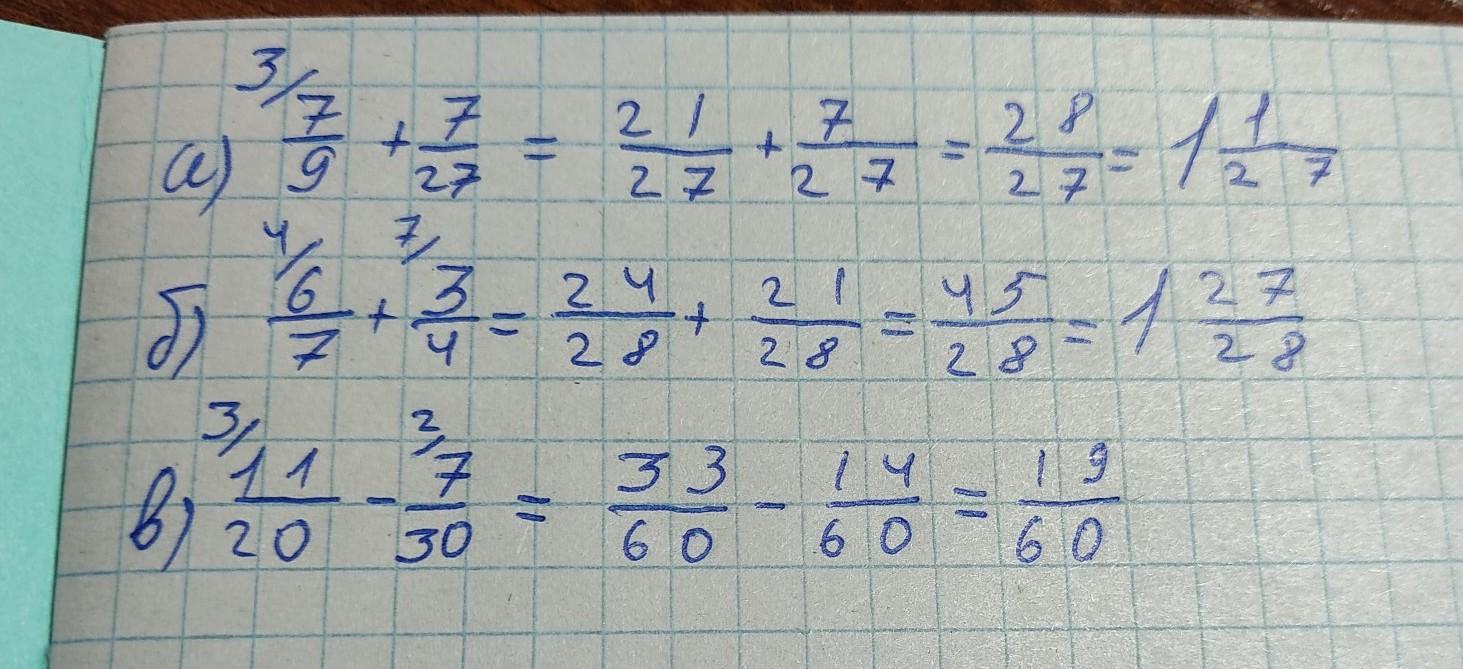 а) 3/ 7/9 + 7/27 = 21/27 + 7/27 = 28/27 = 1 1/27
б) 4/ 6/7 + 7/ 3/4 = 24/28 + 21/28 = 45/28 = 1 27/28
в) 3/ 11/20 - 2/ 7/30 = 33/60 - 14/60 = 19/60